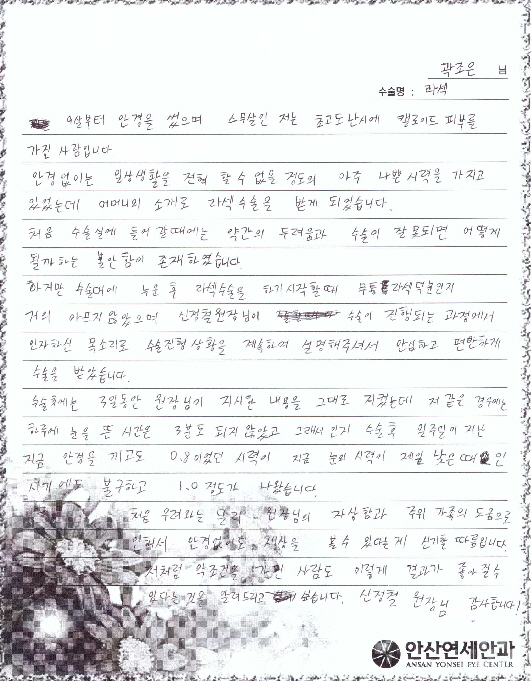 곽조은 님
수술명 : 라섹
9살부터 안경을 썼으며 스무살인 저는 초고도난시에 켈로이드 피부를
가진 사람입니다
안경없이는 일상생활을 전혀 할 수 없을 정도의 아주 나쁜시력을 가지고
있었는데 어머니의 소개로 라섹수술을 받게 되었습니다.
처음 수술실에 들어갈때에는 약간의 두려움과 수술이 잘못되면 어떻게
될까하는 불안함이 존재하였습니다
하지만 수술대에 누운 후 라섹수술을 하기시작할때 무통 라섹덕분인지
거의 아프지않았으며 신경철원장님이 수술이 진행되는 과정에서
인자하신 목소리로 수술진행상황을 계속하여 설명해주셔서 안심하고 편안하게
수술을 받았습니다.
수술후에는 3일동안 원장님이 지시한 내용을 그대로 지켰는데 저 같은 경우에는
하루에 눈을 뜬 시간은 3분도 되지않았고 그래서인지 수술후 일주일이 지난
지금 안경을 끼고도 0.8이었던 시력이 지금 눈의 시력이 제일 낮은때인
시기에도 불구하고 1.0정도가 나왔습니다.
처음 우려와는 달리 원장님의 자상함과 주위 가족의 도움으로
인해서 안경없이도 세상을 볼수 있다는게 신기할 따름입니다
저처럼 악조건을 가진 사람도 이렇게 결과가 좋아질수
있다는것을 알려드리고 싶습니다. 신경철 원장님 감사합니다!
안산연세안과
ANSAN YONSEI EYE CENTER